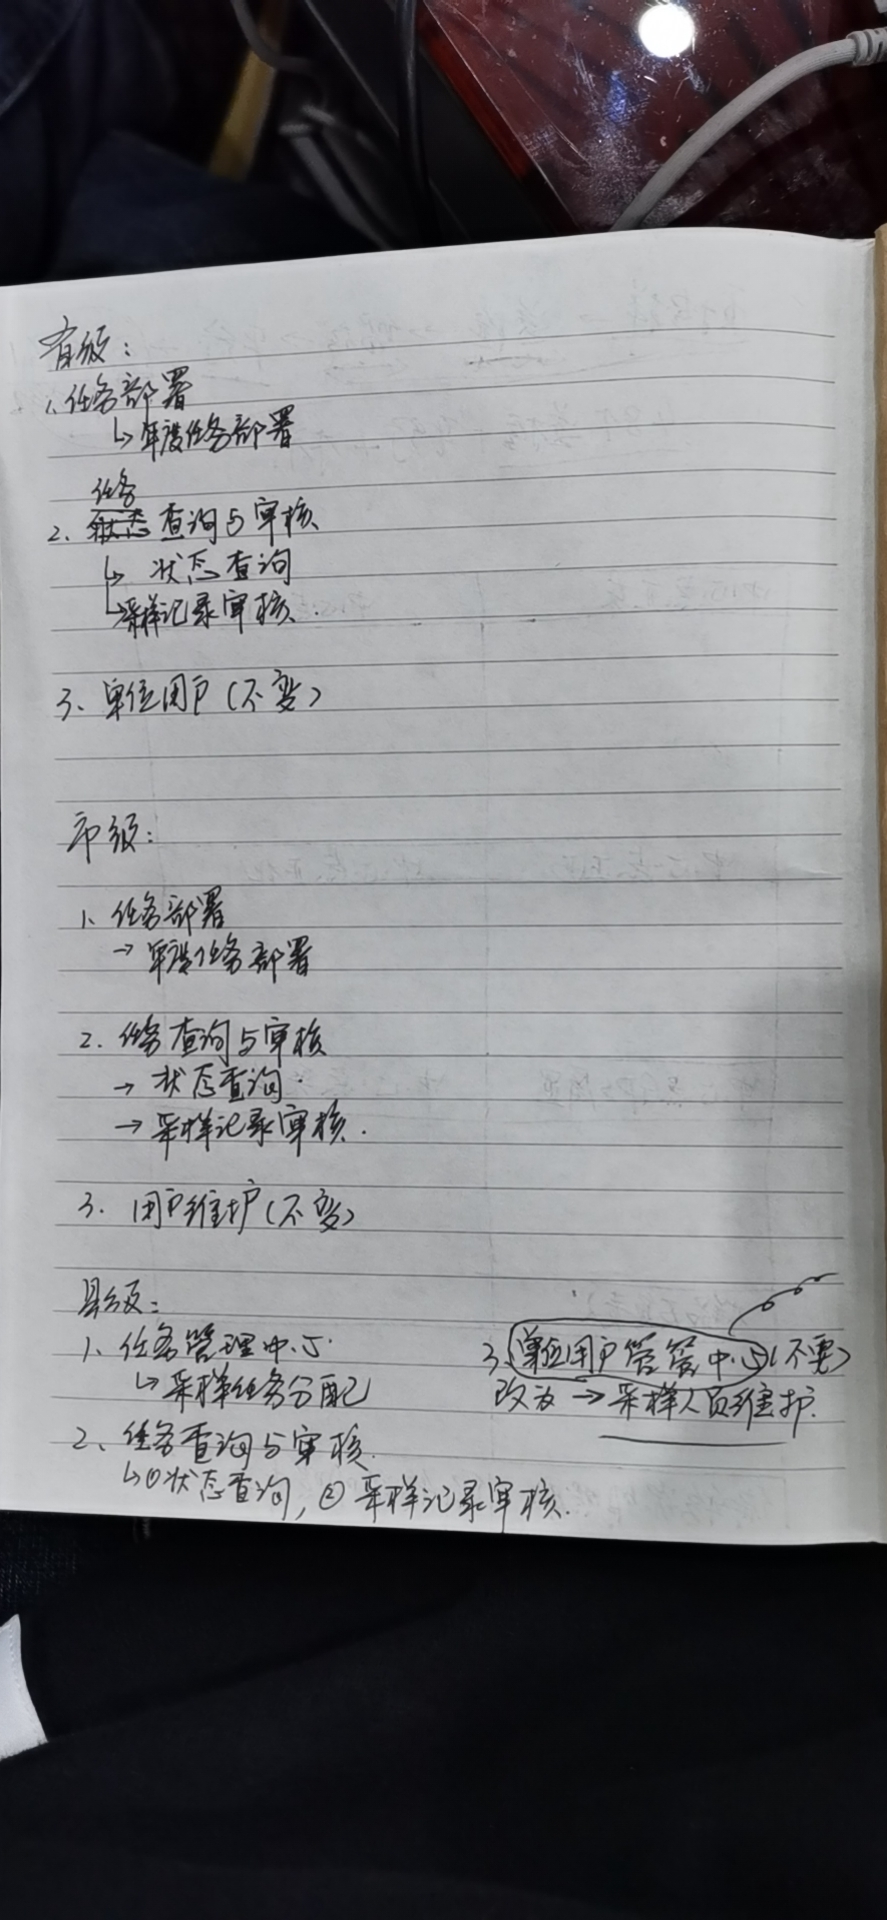 省级：
1、任务部署
↳年度任务部署
任务
2、状态查询与审核
↳ 状态查询
↳采样记录审核.
3、单位用户（不变）
市级：
1、任务部署
→ 年度任务部署
2. 任务查询与审核
→ 状态查询.
→ 采样记录审核.
3. 用户维护（不变）
县级：
1、任务管理中心.
↳采样任务分配
2、任务查询与审核.
↳①状态查询，② 采样记录审核.
3、单位用户管管中心（不要）
改为 → 采样人员维护.